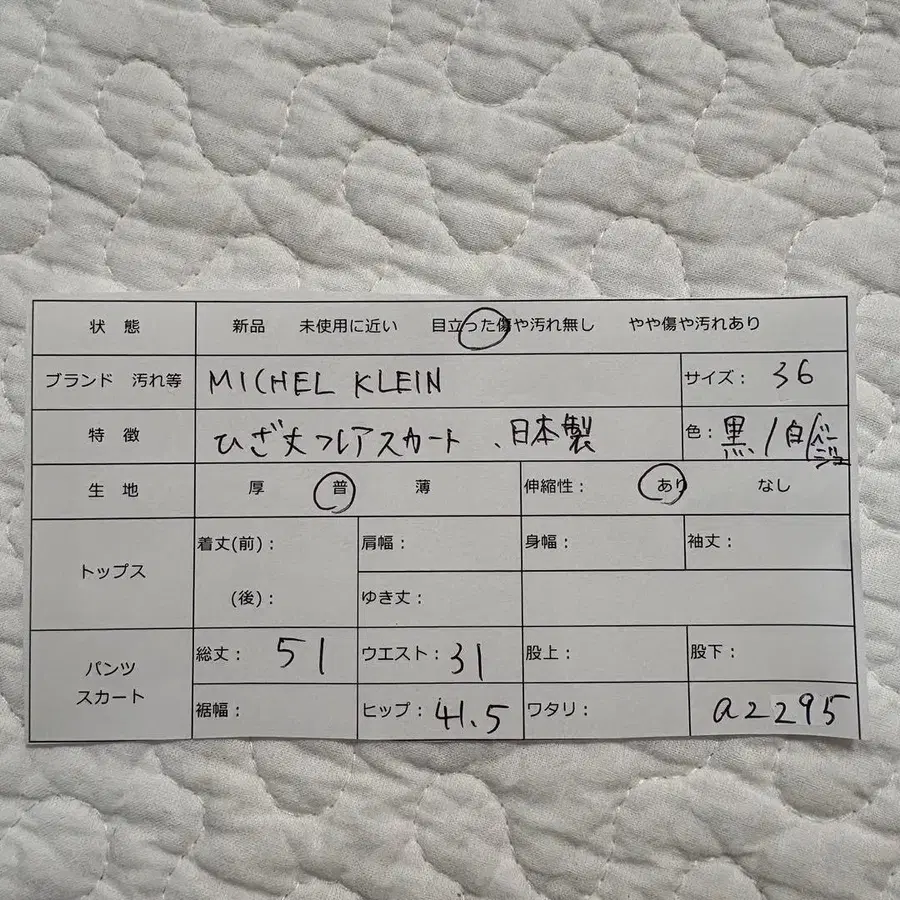 状 態 新品 未使用に近い 目立った傷や汚れ無し やや傷や汚れあり
ブランド 汚れ等 MICHEL KLEIN サイズ： 36
特 徴 ひざ丈フレアスカート、日本製 色： 黒/白/ベージュ
生 地 厚 普 薄 伸縮性： あり なし
トップス 着丈(前)： 肩幅： 身幅： 袖丈：
(後)： ゆき丈：
パンツ スカート 総丈： 51 ウエスト： 31 股上： 股下：
裾幅： ヒップ： 41.5 ワタリ： a2295